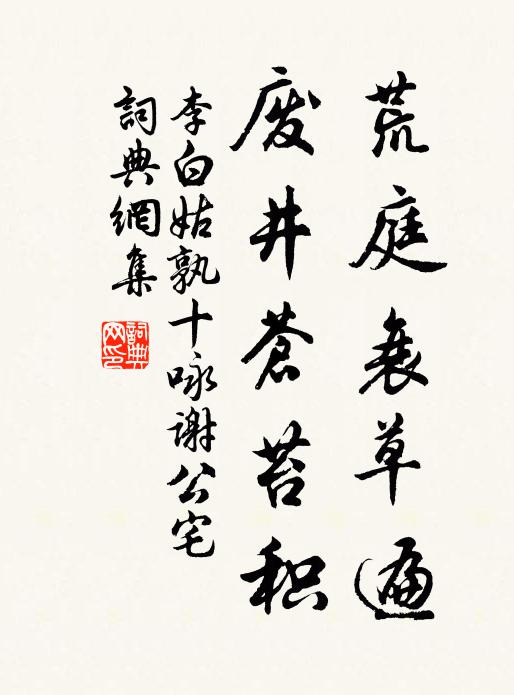 荒庭衰草遍
废井苍苔积
李白姑孰十咏谢公宅
詞典網集
詞典网印